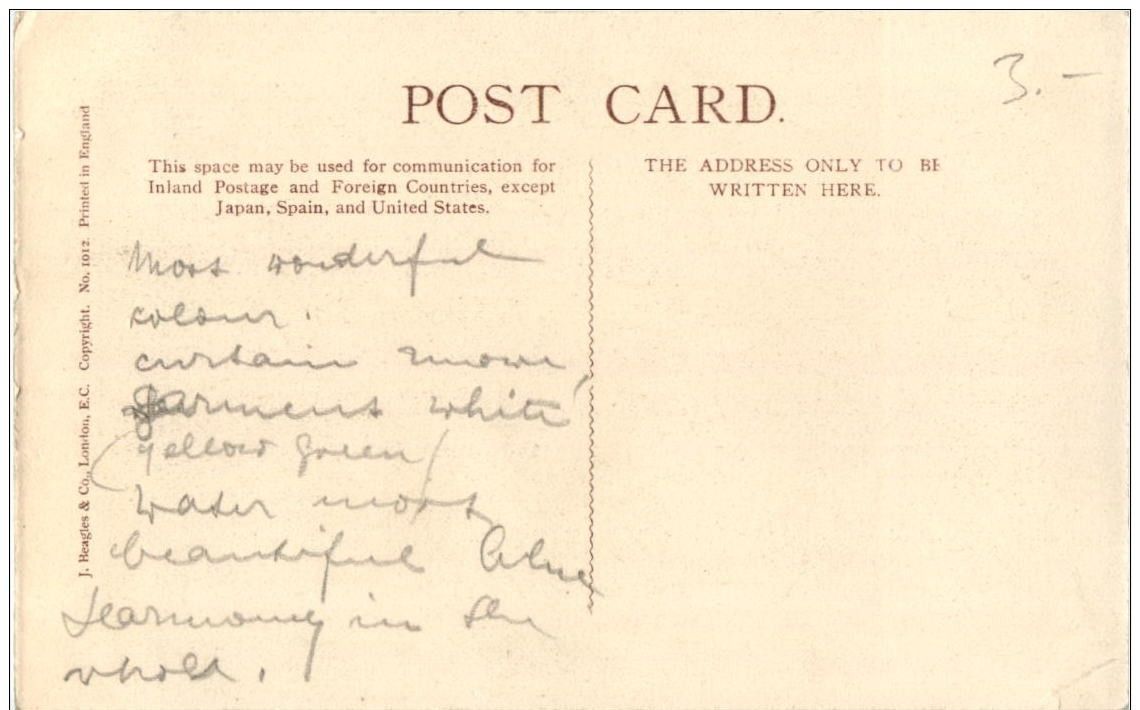 POST CARD.
3.–
This space may be used for communication for
Inland Postage and Foreign Countries, except
Japan, Spain, and United States.
THE ADDRESS ONLY TO BE
WRITTEN HERE.
J. Beagles & Co., London, E.C. Copyright. No. 1012. Printed in England
Most wonderful
colour.
curtain
garment white
(yellow green)
water most
beautiful blue
Harmony in the
whole.